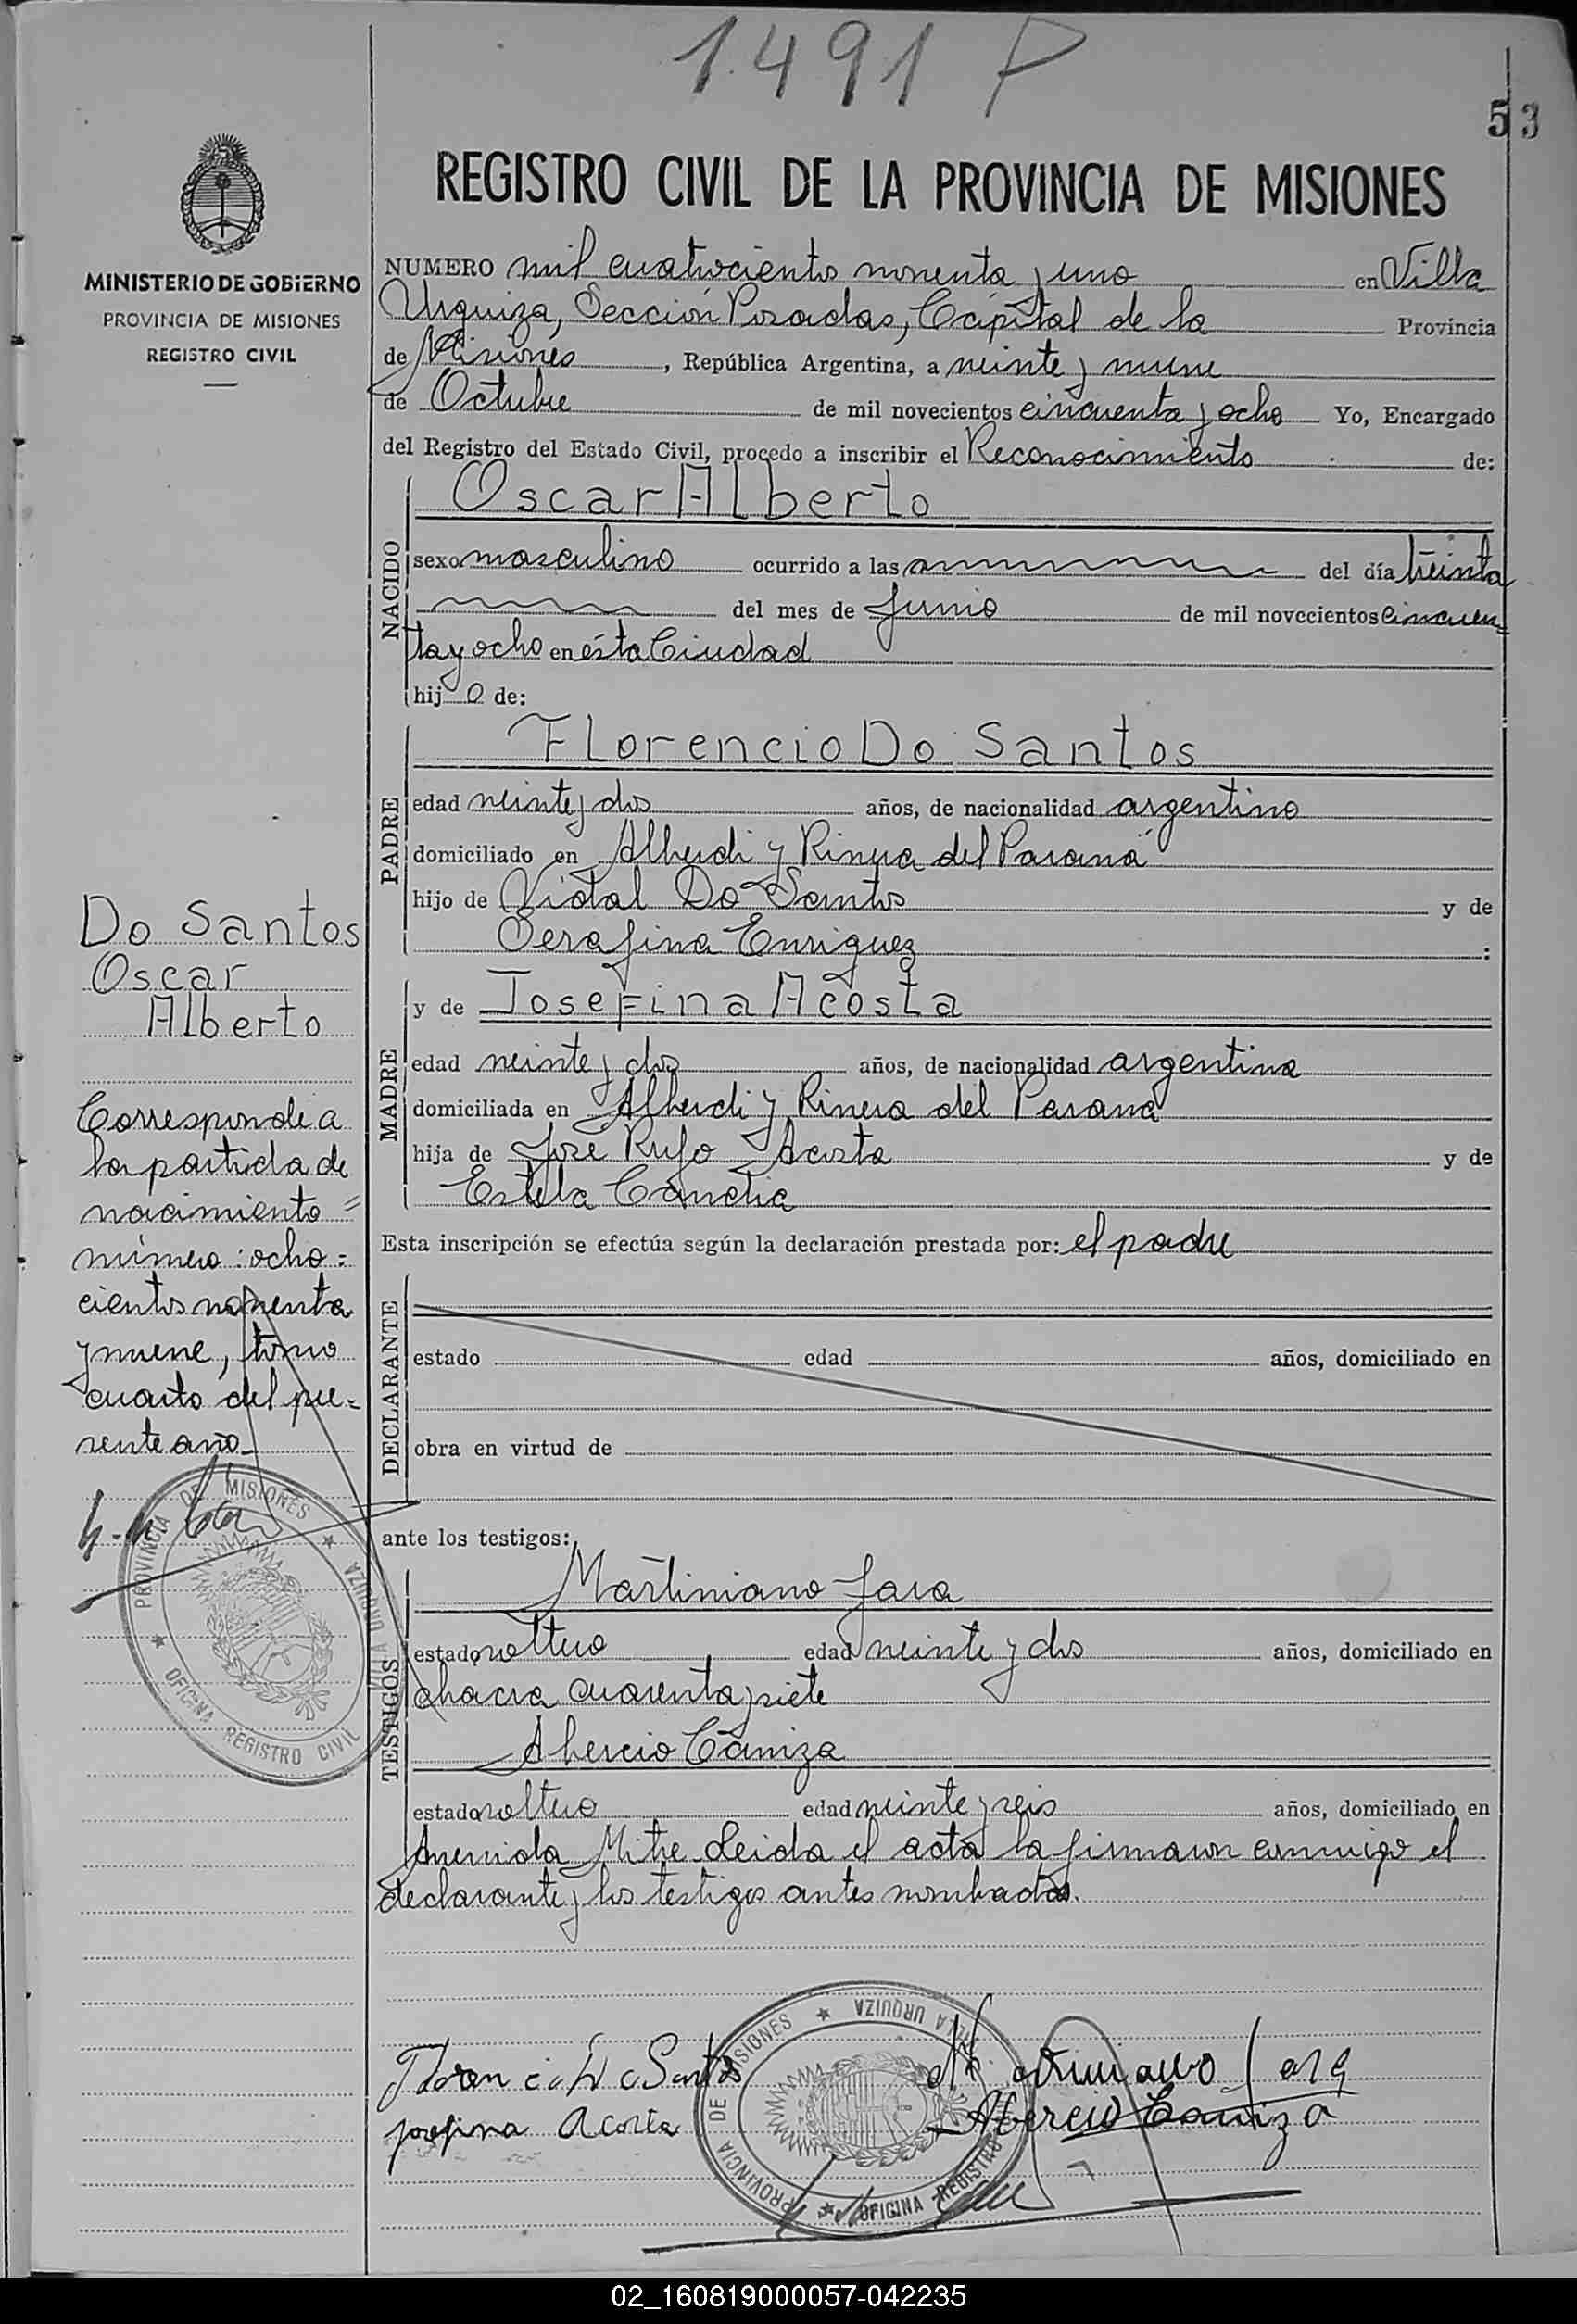 1.491 P
53
REGISTRO CIVIL DE LA PROVINCIA DE MISIONES
MINISTERIO DE GOBIERNO
PROVINCIA DE MISIONES
REGISTRO CIVIL
NUMERO mil cuatrocientos noventa y uno en Villa
Urquiza, Sección Posadas, Capital de la Provincia
de Misiones, República Argentina, a veinte y nueve
de Octubre de mil novecientos cincuenta y ocho Yo, Encargado
del Registro del Estado Civil, procedo a inscribir el Reconocimiento de:
NACIDO
Oscar Alberto
sexo masculino ocurrido a las del día treinta
del mes de Junio de mil novecientos cincuen=
ta y ocho en ésta Ciudad
hijo de:
PADRE
Florencio Do Santos
edad veinte y dos años, de nacionalidad argentino
domiciliado en Alberdi y Rivera del Paraná
hijo de Vidal Do Santos y de
Serafina Enriquez :
MADRE
y de Josefina Acosta
edad veinte y dos años, de nacionalidad argentina
domiciliada en Alberdi y Rivera del Paraná
hija de José Rufo Acosta y de
Estela
Esta inscripción se efectúa según la declaración prestada por: el padre
DECLARANTE
estado edad años, domiciliado en
obra en virtud de
ante los testigos:
TESTIGOS
Martiniano Jara
estado soltero edad veinte y dos años, domiciliado en
chacra cuarenta y siete
Abercio Caniza
estado soltero edad veinte y seis años, domiciliado en
Avenida Mitre. Leida el acta la firmaron conmigo el
declarante y los testigos antes nombrados.
Do Santos
Oscar
Alberto
Corresponde a
la partida de
nacimiento =
número : ocho =
cientos noventa
y nueve, tomo
cuarto del pre=
sente año.
PROVINCIA DE MISIONES
VILLA URQUIZA
OFICINA REGISTRO CIVIL
Florencio Do Santos
josefina Acosta
Martiniano Jara
Abercio Caniza
PROVINCIA DE MISIONES
VILLA URQUIZA
OFICINA REGISTRO
02_160819000057-042235